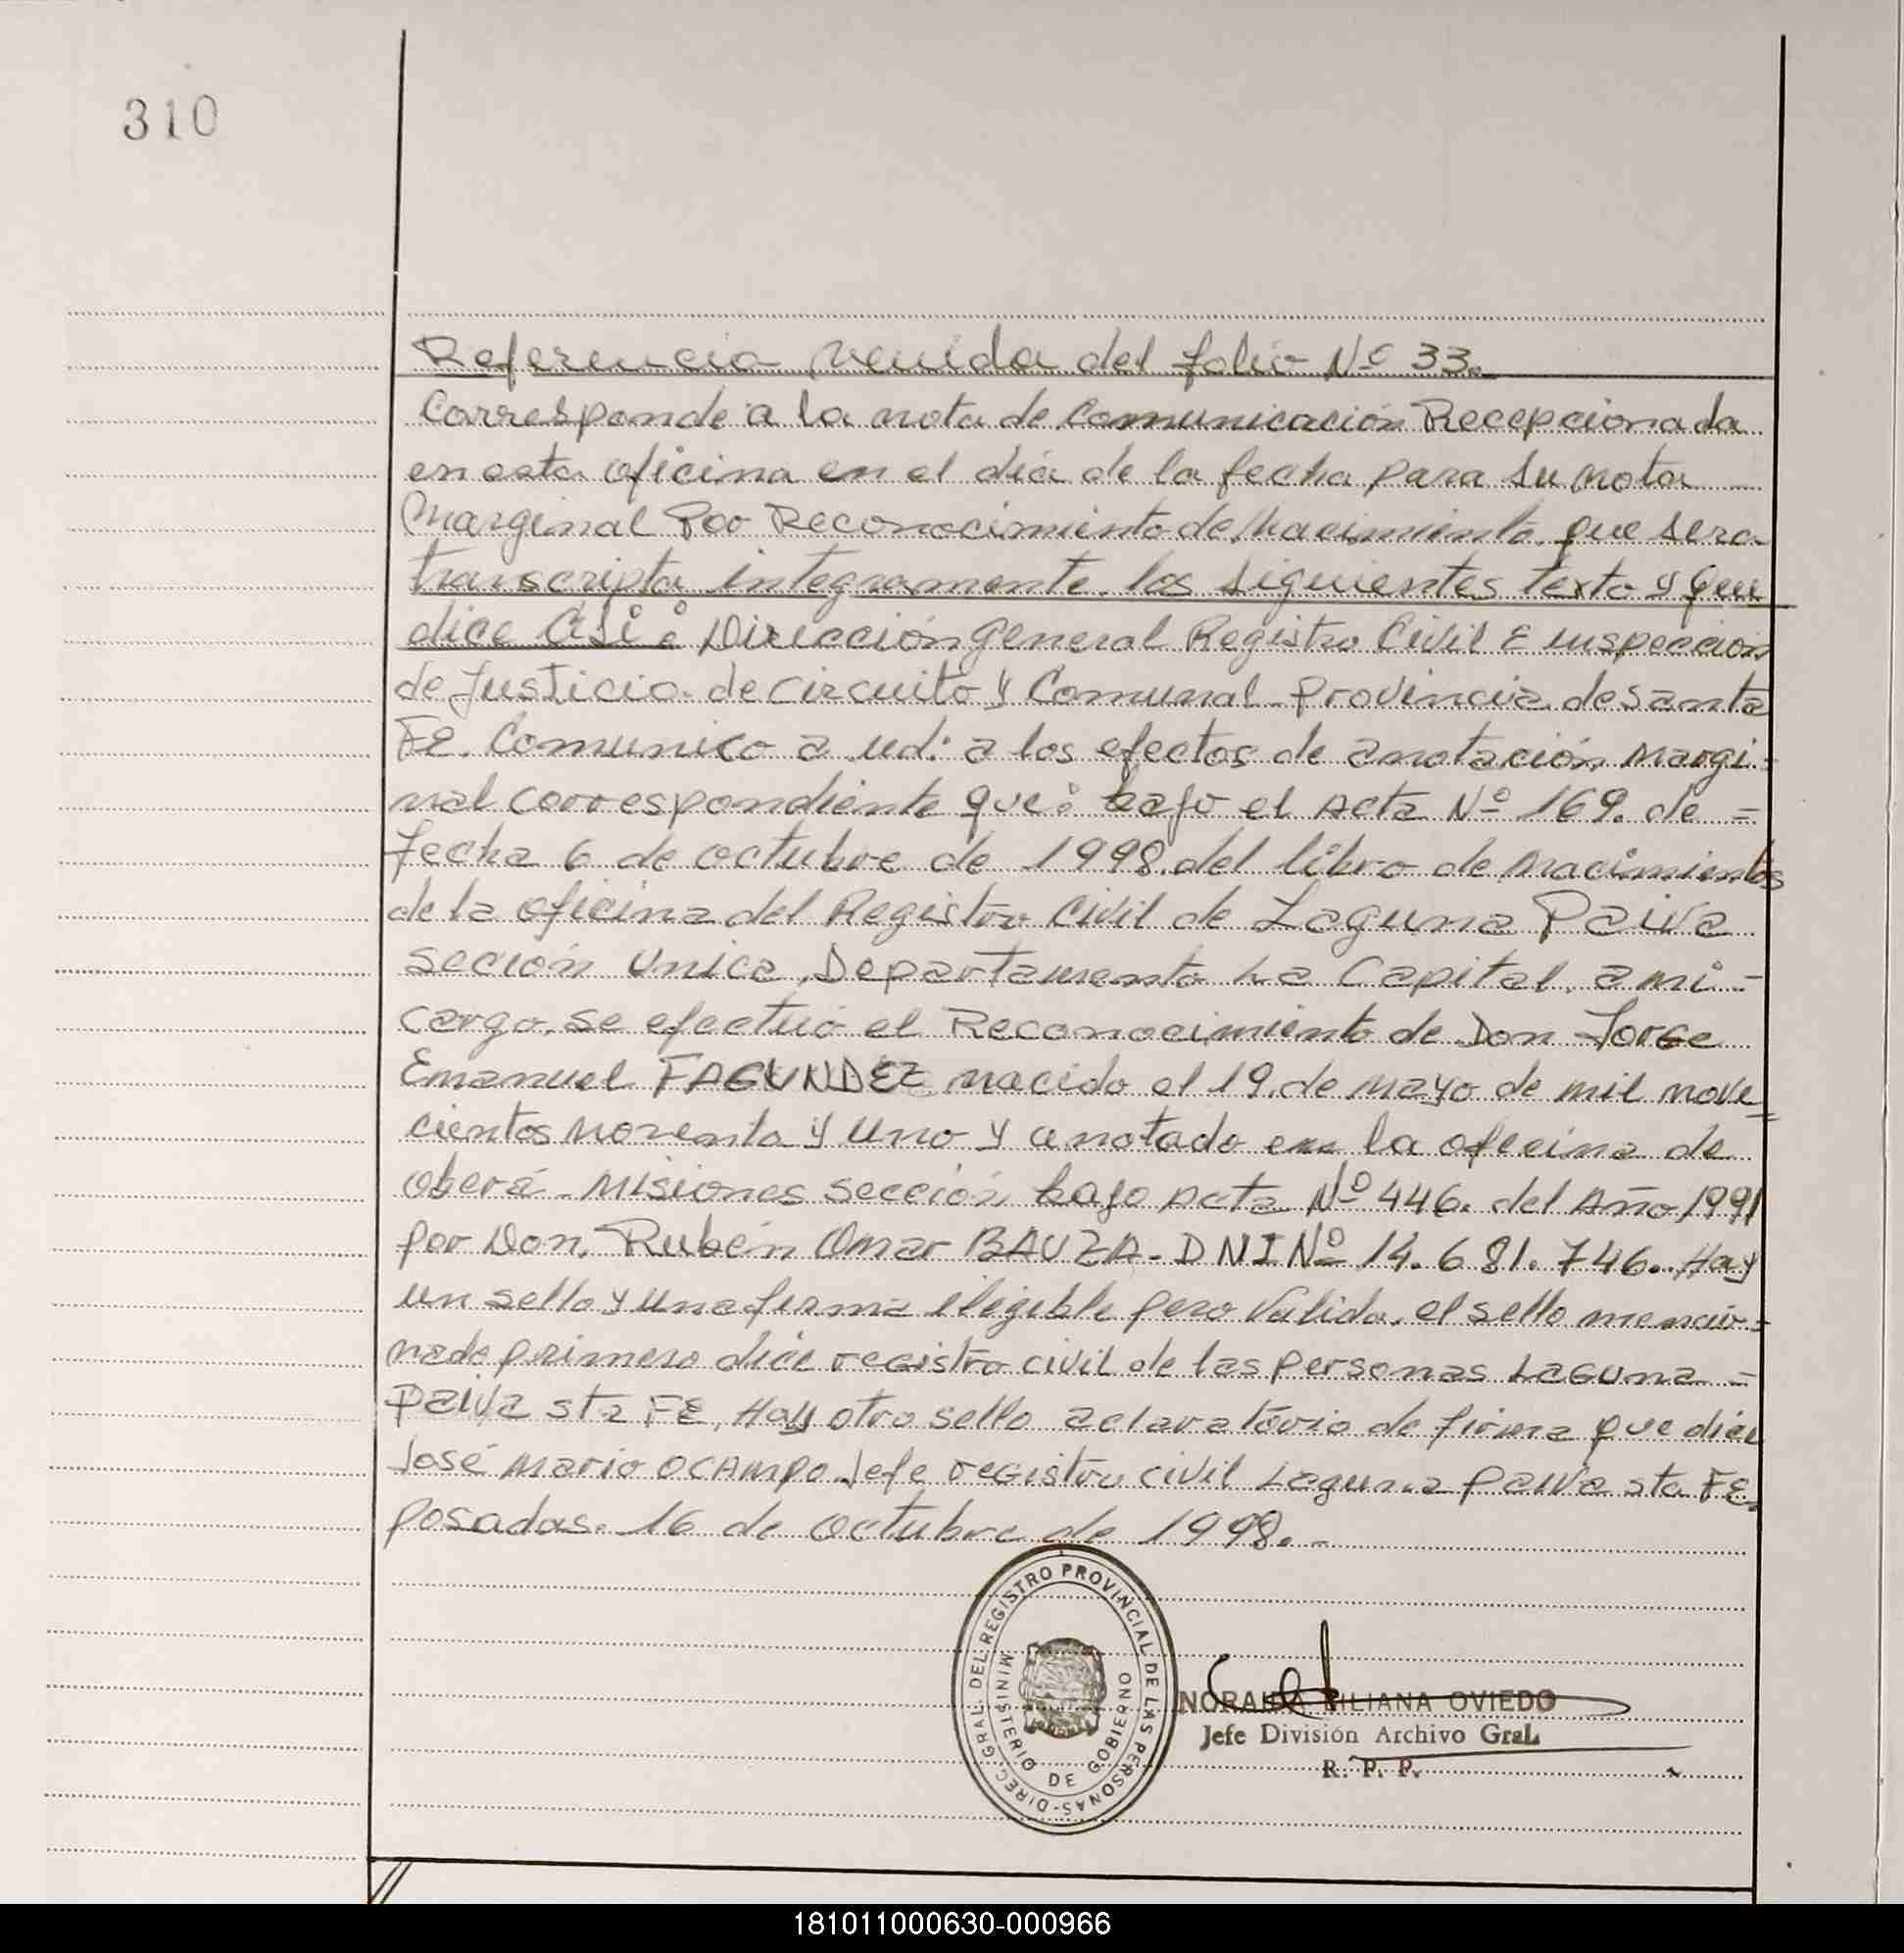 310
Referencia venida del folio Nº 33.
Corresponde a la nota de Comunicación Recepcionada
en esta oficina en el dia de la fecha para su nota
Marginal Por Reconocimiento de Nacimiento que sera
transcripta integramente. los siguientes texto y que
dice Asi: Dirección General Registro Civil E inspección
de Justicia de circuito y Comunal - provincia de santa
FE. Comunico a ud: a los efectos de anotación Margi=
nal correspondiente que: bajo el Acta Nº 169. de =
fecha 6 de octubre de 1998. del libro de nacimientos
de la oficina del Registro Civil de Laguna Paiva
seción unica, Departamento La Capital, a mi -
cargo, se efectuó el Reconocimiento de Don Jorge
Emanuel FAGUNDEZ nacido el 19. de mayo de mil nove=
cientos noventa y uno y anotado en la oficina de
oberá - Misiones sección bajo acta Nº 446. del Año 1991
por Don, Rubén Omar BAUZA - DNI Nº 14.681.746.. Hay
un sello y una firma ilegible pero valida, el sello mencio=
nado primero dice registro civil de las personas Laguna =
Paiva sta FE, Hay otro sello aclaratorio de firma que dice
José Mario OCAMPO Jefe registro civil Laguna paiva sta FE.
posadas. 16 de octubre de 1998. -
DIREC. GRAL. DEL REGISTRO PROVINCIAL DE LAS PERSONAS-
MINISTERIO DE GOBIERNO
LILIANA OVIEDO
Jefe División Archivo Gral.
R. P. P.
181011000630-000966